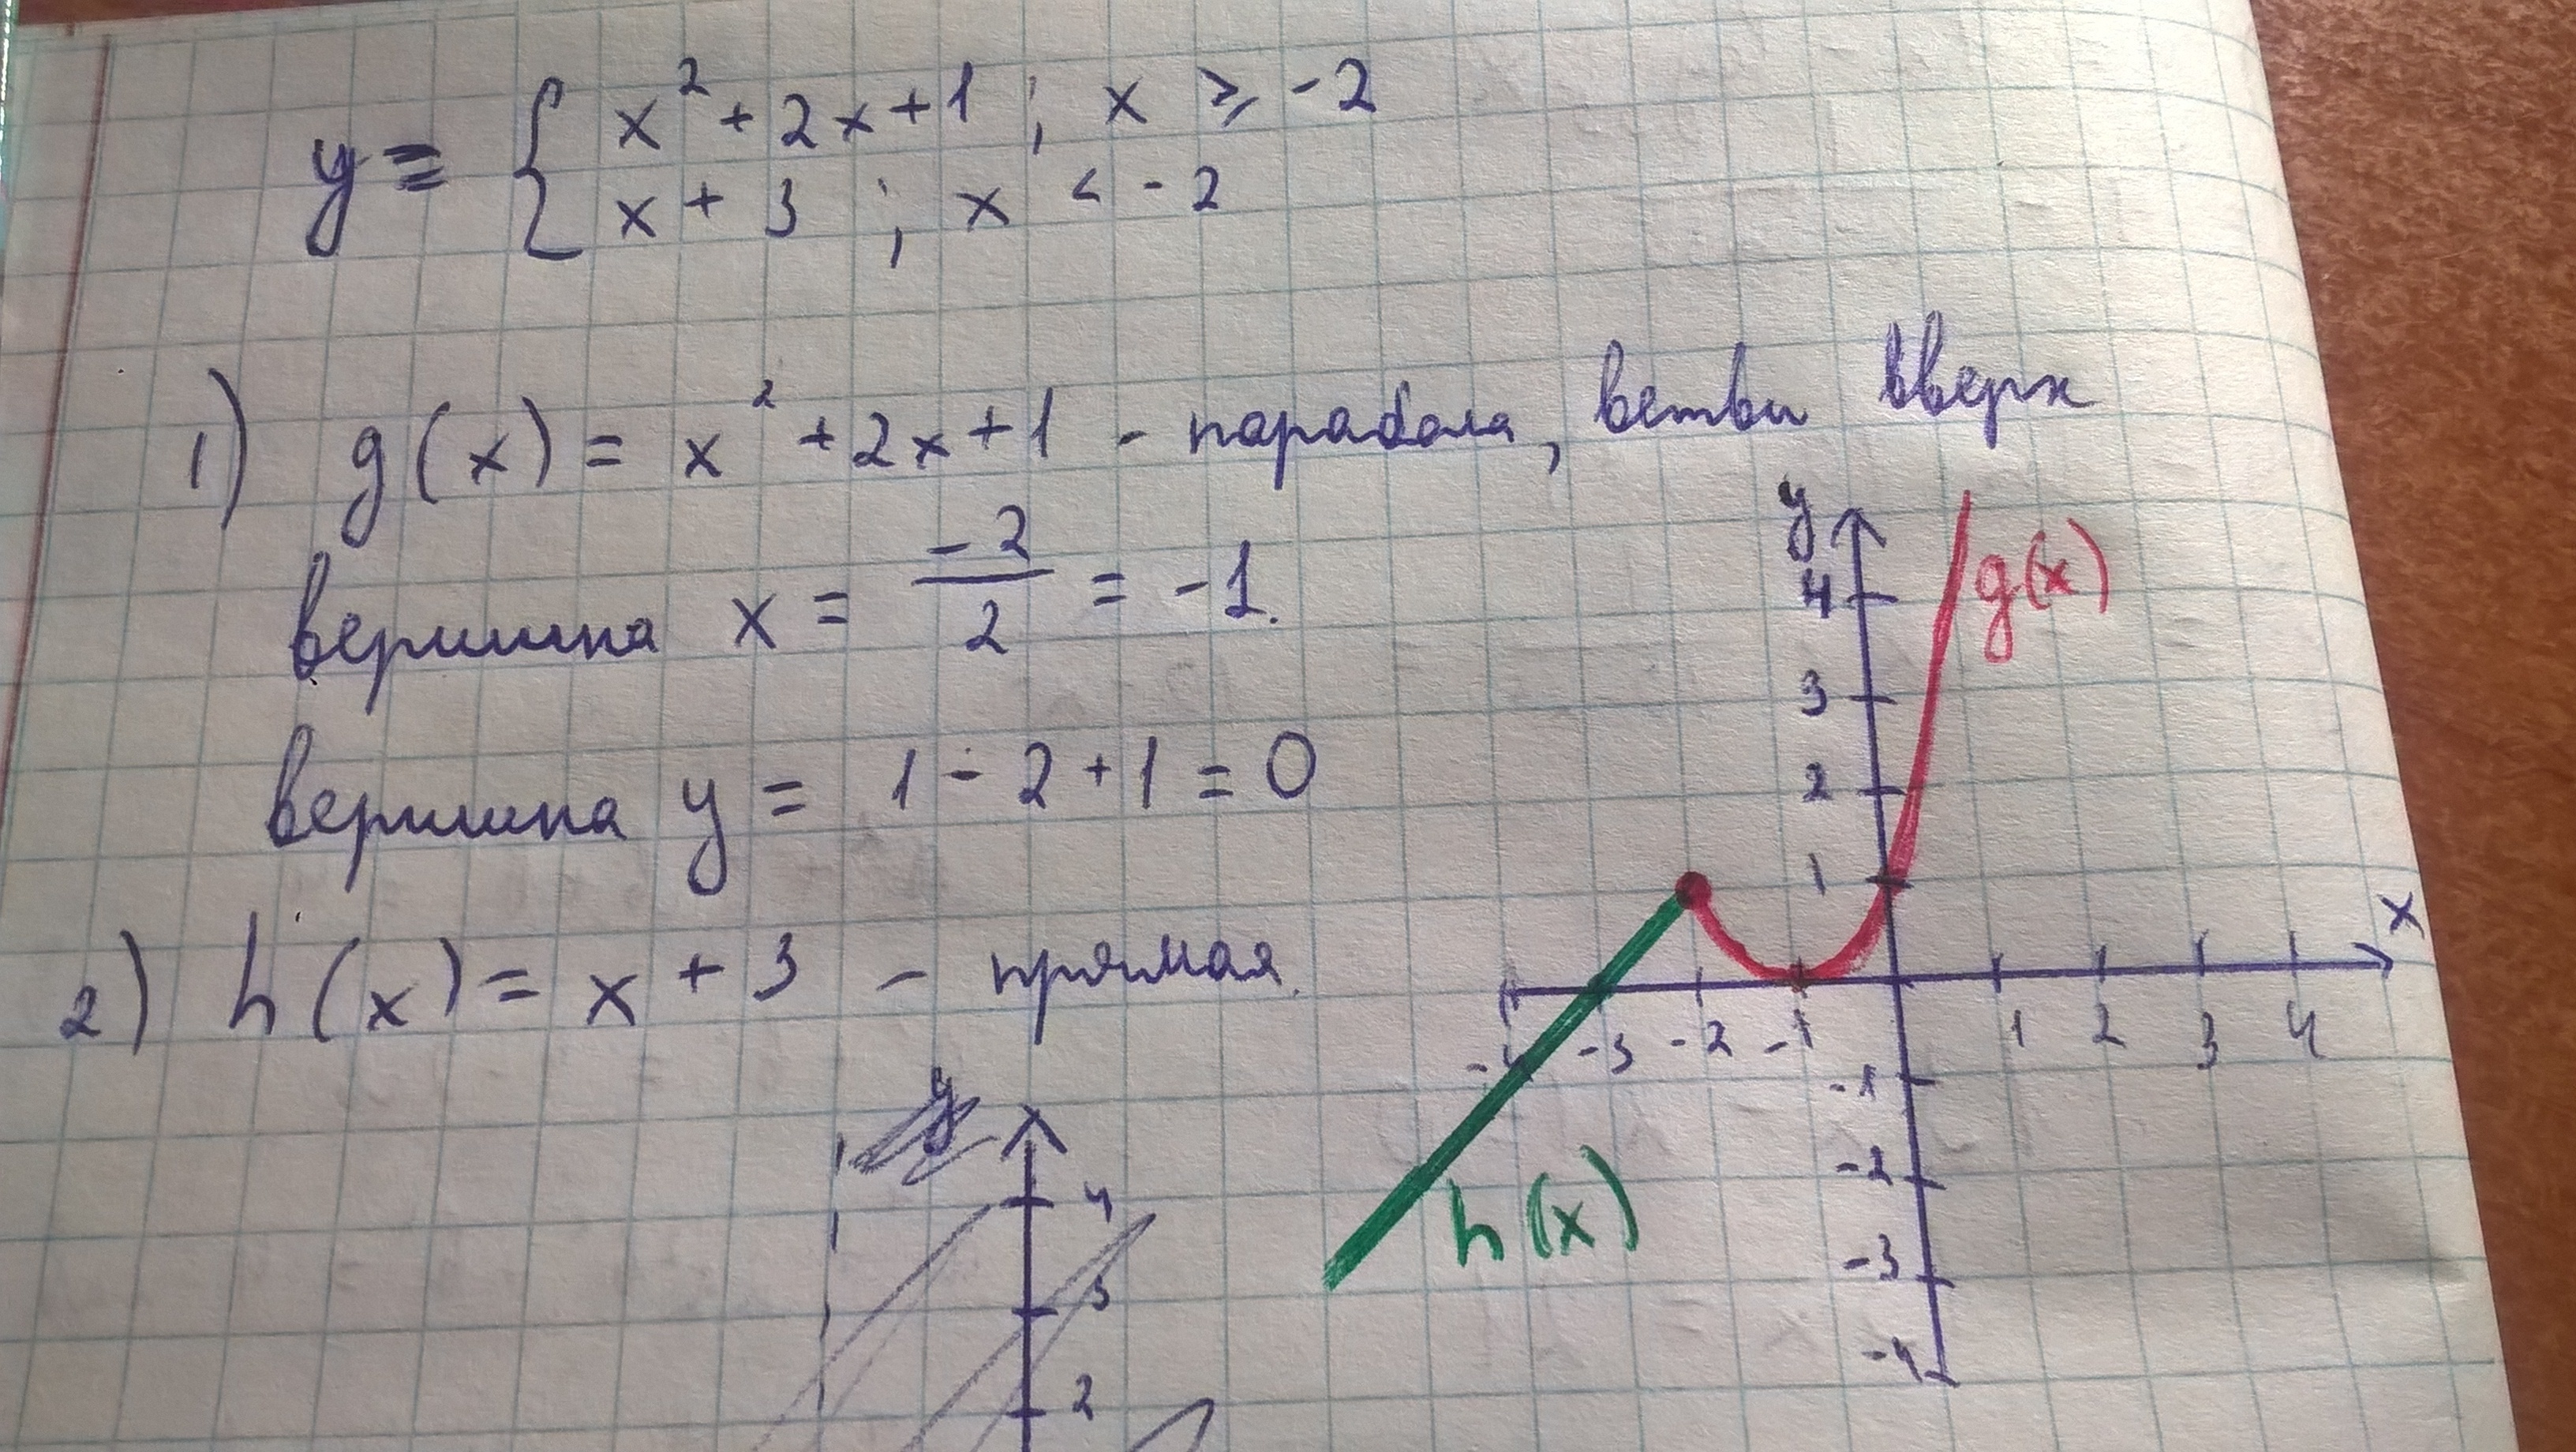 y = { x² + 2x + 1 ; x ≥ -2
x + 3 ; x < -2
1) g(x) = x² + 2x + 1 - парабола, ветви вверх
вершина x = -2/2 = -1.
вершина y = 1 - 2 + 1 = 0
2) h(x) = x + 3 - прямая.
y
4
3
2
1
-1
-2
-3
-4
x
-4 -3 -2 -1 1 2 3 4
g(x)
h(x)
y
4
3
2